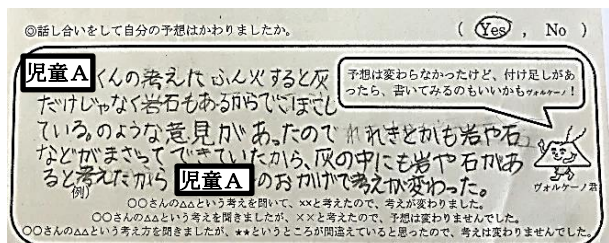 ◎話し合いをして自分の予想はかわりましたか。 ( Yes , No )
児童A くんの考えた ふん火すると灰
だけじゃなく岩石もあるからでこぼこし
ている。のような意見があったので れきとかも岩や石
などがまざってできていたから、灰の中にも岩や石があ
ると考えたから 児童A のおかげで考えが変わった。
予想は変わらなかったけど、付け足しがあ
ったら、書いてみるのもいいかもヴォルケーノ!
ヴォルケーノ君
(例)
○○さんの△△という考えを聞いて、××と考えたので、考えが変わりました。
○○さんの△△という考えを聞きましたが、××と考えたので、予想は変わりませんでした。
○○さんの△△という考え方を聞きましたが、★★というところが間違えていると思ったので、考えは変わりませんでした。